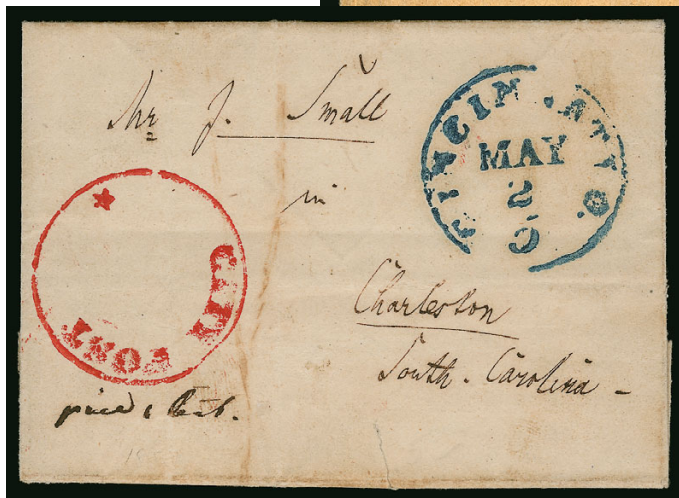 Mr J. Small
in
Charleston
South - Carolina -
CINCINNATI O.
MAY
2
CITY POST